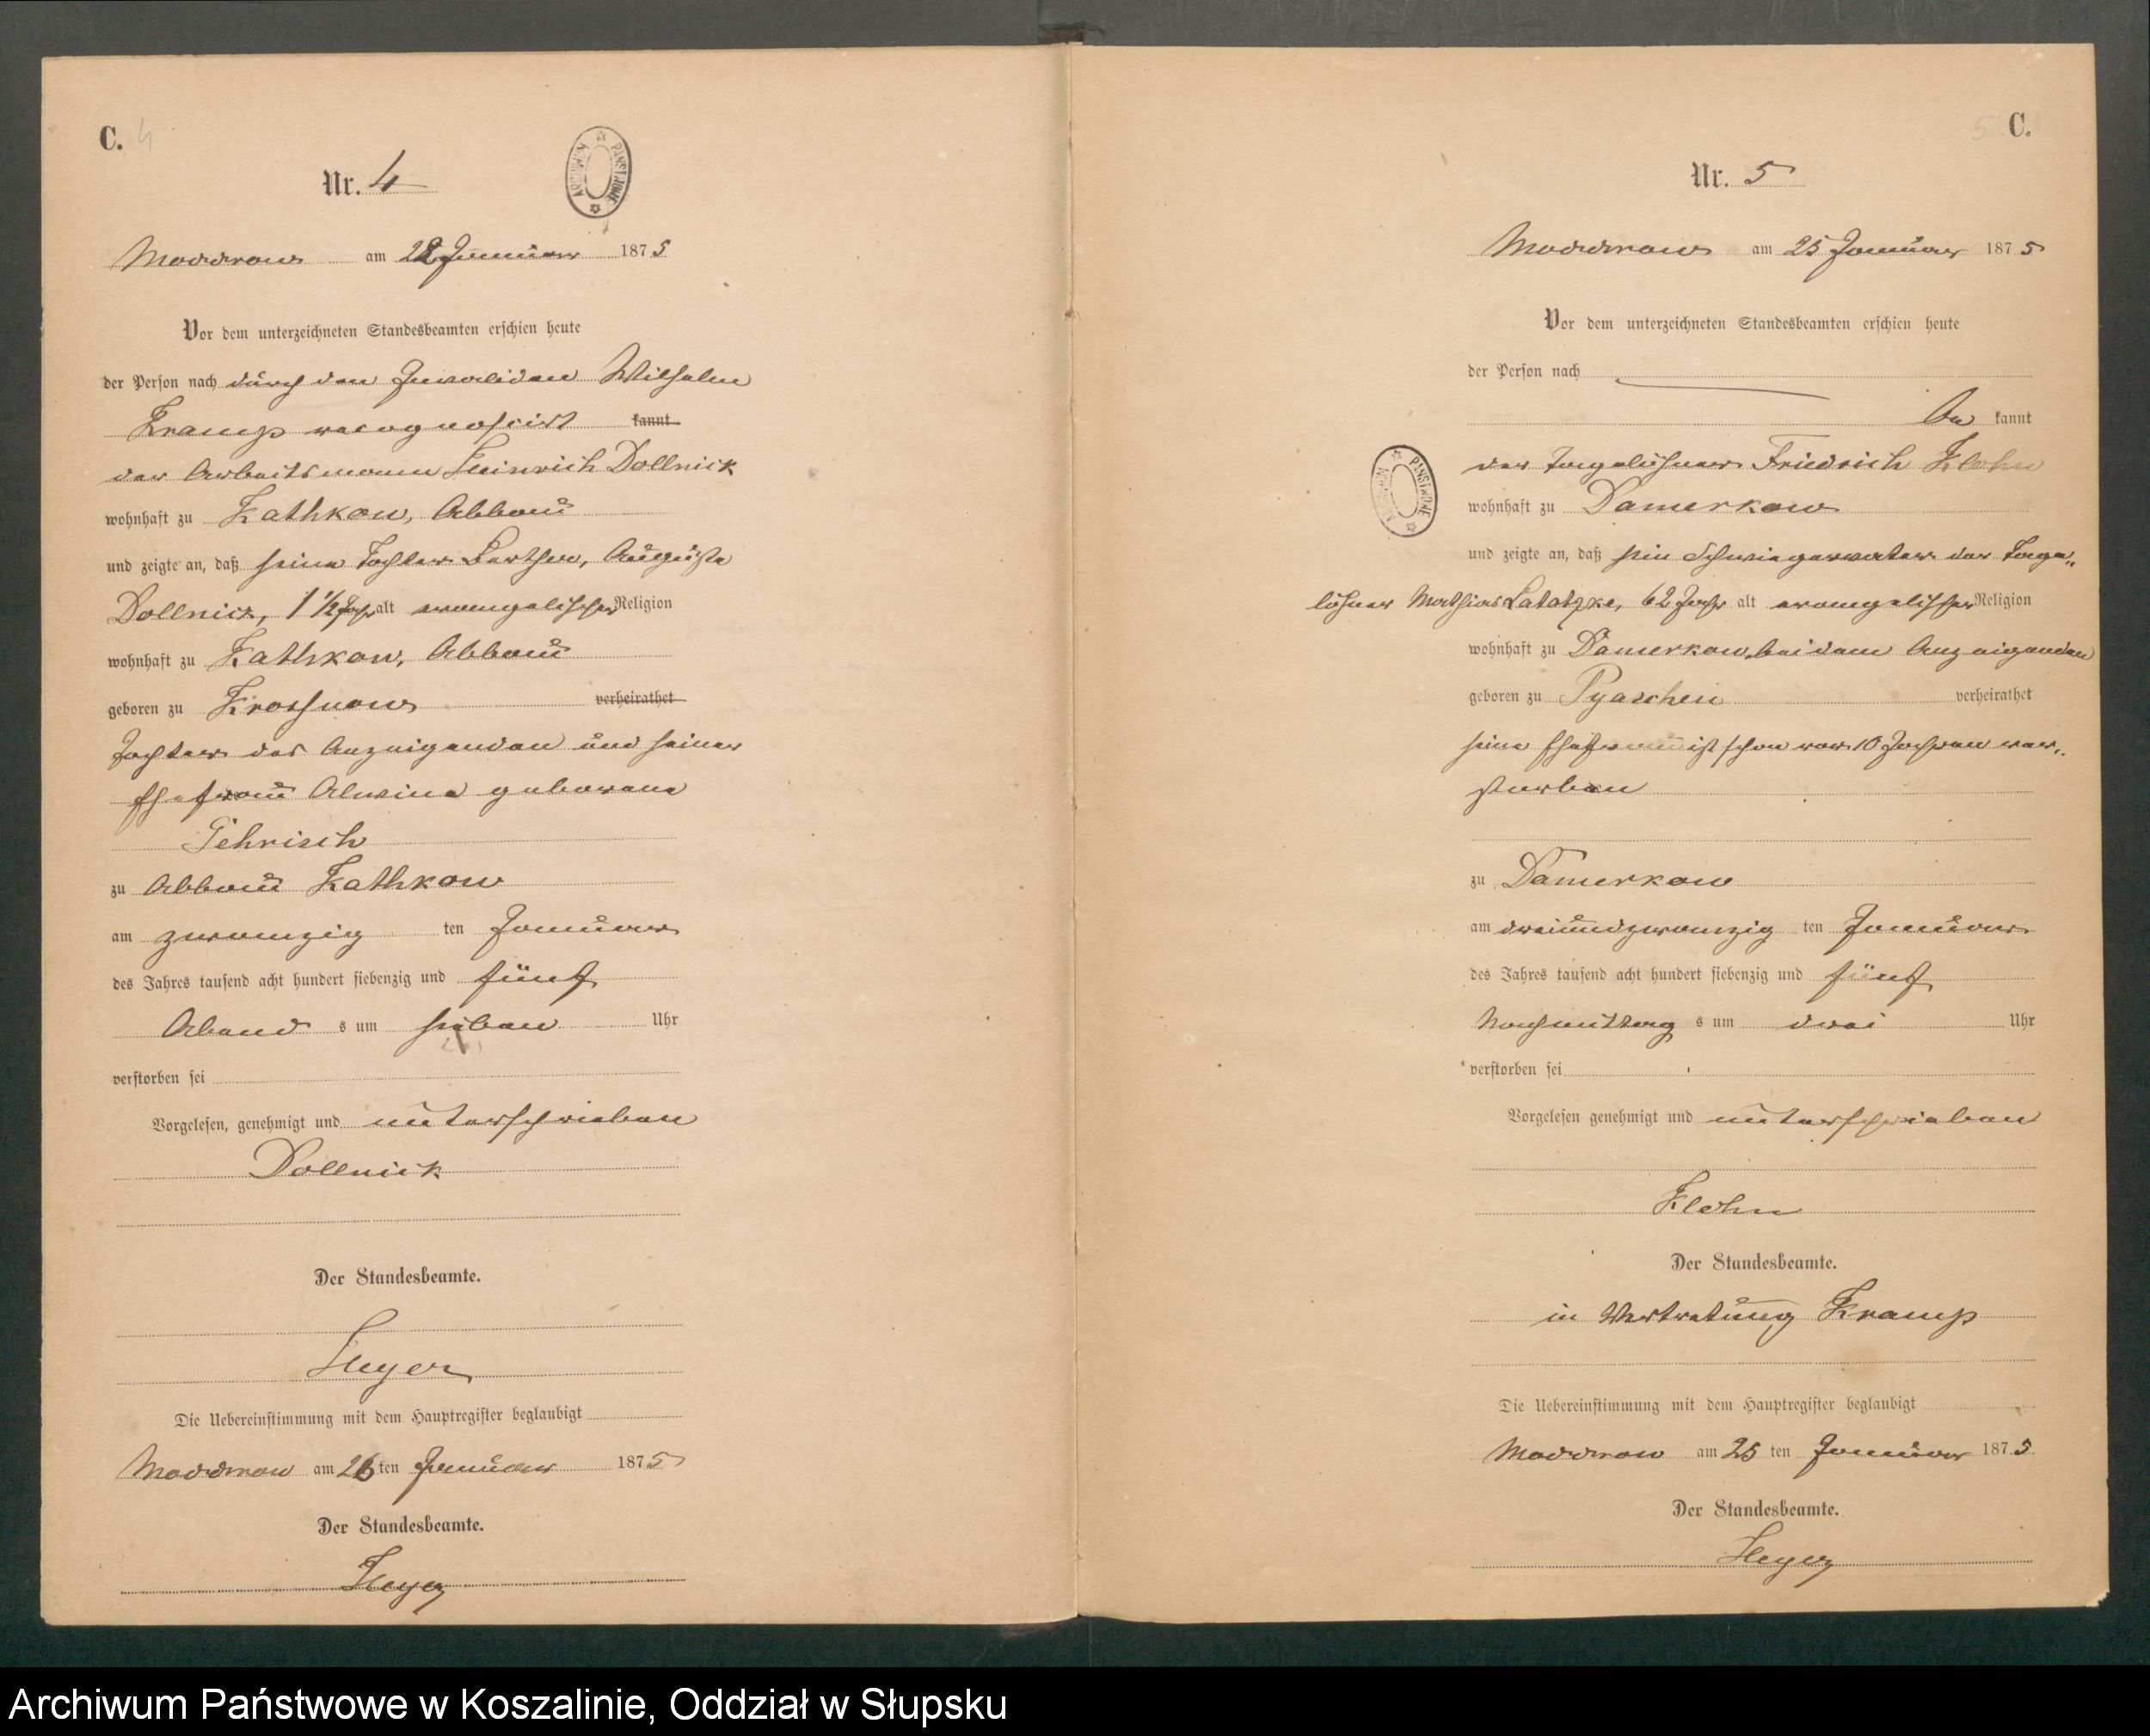 C. 4
Nr. 4
ARCHIWUM PAŃSTWOWE
Moddrow am 22 Januar 1875
Vor dem unterzeichneten Standesbeamten erschien heute
der Person nach durch den Invaliden Wilhelm
Kramp recognoscirt kannt
der Arbeitsmann Heinrich Dollnick
wohnhaft zu Kathkow, Abbau
und zeigte an, daß seine Tochter Bertha, Auguste
Dollnick, 1 1/2 Jahr alt evangelischer Religion
wohnhaft zu Kathkow, Abbau
geboren zu Krossnow verheirathet
Tochter des Anzeigenden und seiner
Ehefrau Alwine geborene
Gehrisch
zu Abbau Kathkow
am zwanzig ten Januar
des Jahres tausend acht hundert siebenzig und fünf
Abend s um sieben Uhr
verstorben sei
Vorgelesen, genehmigt und unterschrieben
Dollnick
Der Standesbeamte.
Heyer
Die Uebereinstimmung mit dem Hauptregister beglaubigt
Moddrow am 26 ten Januar 1875
Der Standesbeamte.
Heyer
5 C.
Nr. 5
Moddrow am 25 Januar 1875
Vor dem unterzeichneten Standesbeamten erschien heute
der Person nach
be kannt
der Tagelöhner Friedrich Klohn
ARCHIWUM PAŃSTWOWE
wohnhaft zu Damerkow
und zeigte an, daß sein Schwiegervater der Tage„
löhner Mathias Latatzke, 62 Jahr alt evangelischer Religion
wohnhaft zu Damerkow, bei dem Anzeigenden
geboren zu Pyaschen verheirathet
seine Ehefrau ist schon vor 10 Jahren ver„
storben
zu Damerkow
am dreiundzwanzig ten Januar
des Jahres tausend acht hundert siebenzig und fünf
Nachmittag s um drei Uhr
verstorben sei
Vorgelesen genehmigt und unterschrieben
Klohn
Der Standesbeamte.
in Vertretung Kramp
Die Uebereinstimmung mit dem Hauptregister beglaubigt
Moddrow am 25 ten Januar 1875
Der Standesbeamte.
Heyer
Archiwum Państwowe w Koszalinie, Oddział w Słupsku